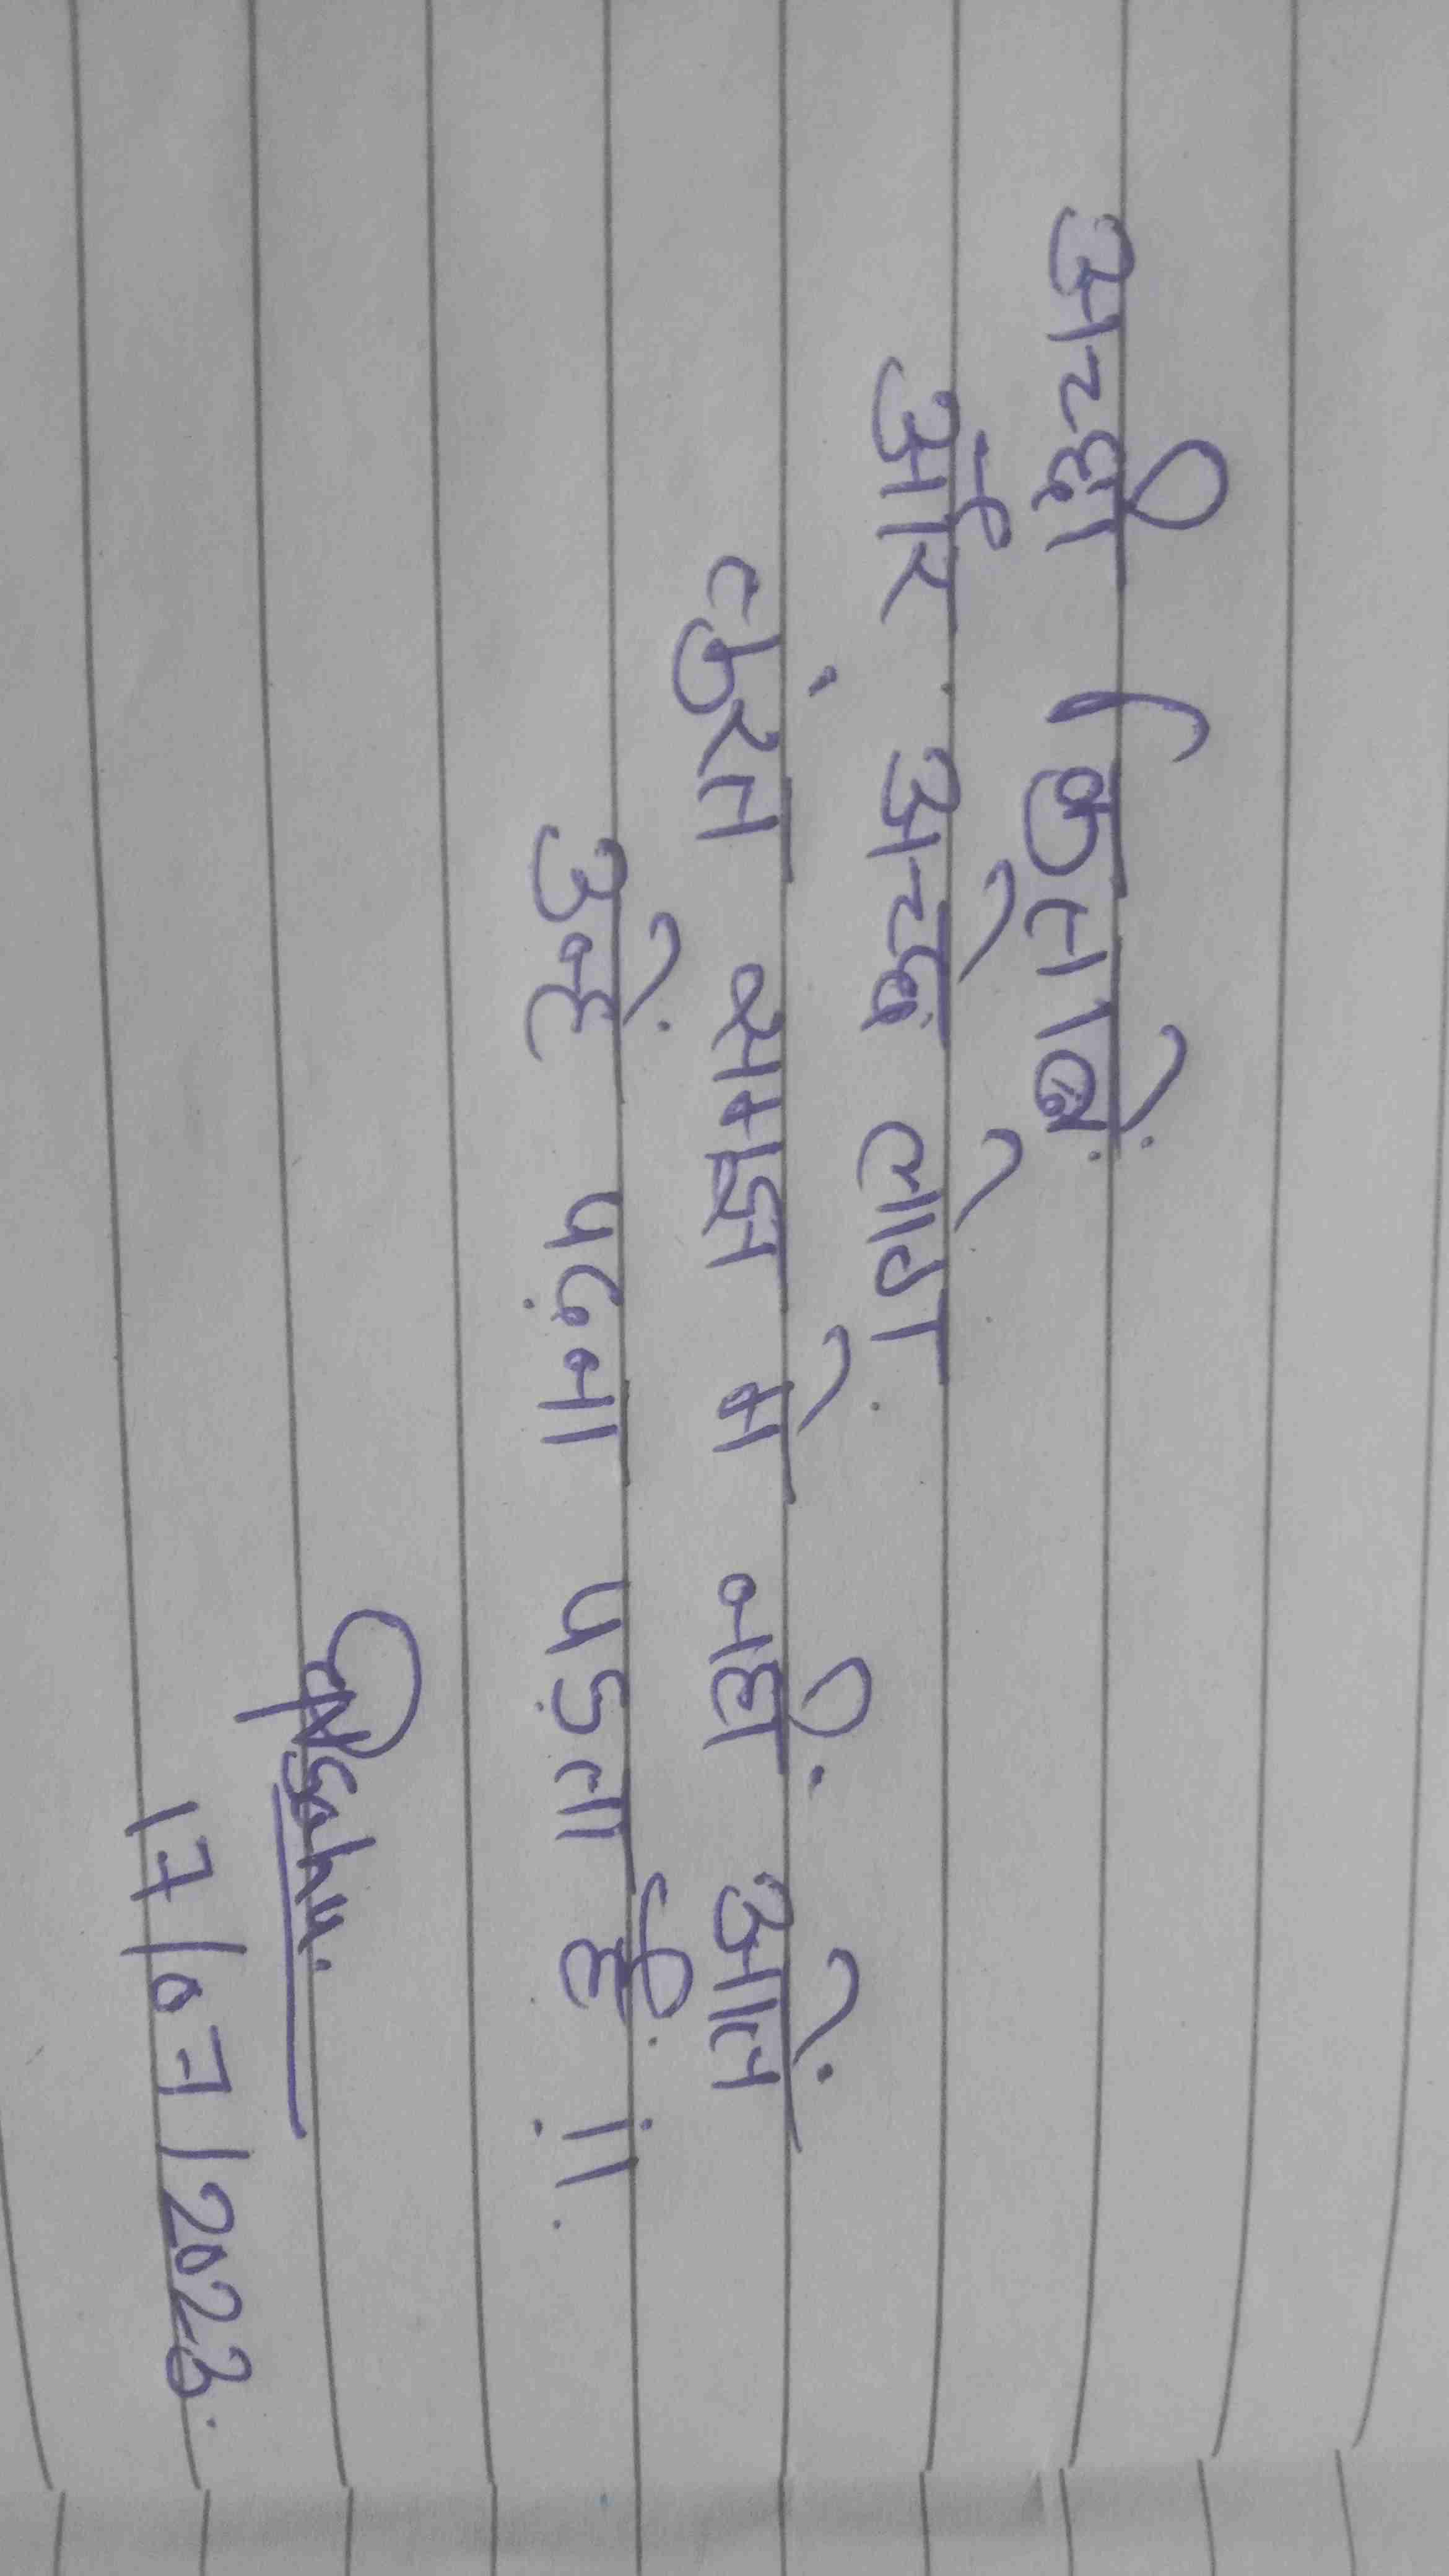 अच्छी किताबें
और अच्छे लोग
तुंरत समझ मे नहीं आतें
उन्हें पढ़ना पड़ता हैं !।
17/07/2023.